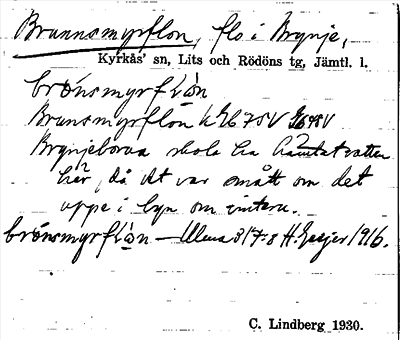 Brunnsmyrflon, flo i Brynje,
Kyrkås' sn, Lits och Rödöns tg, Jämtl. l.
brónsmyrfłån
Brunsmyrflon
Brynjeborna skola ha hämtat vatten
här, då det var smått om det
uppe i byn om vintern.
brónsmyrfłån — Ulma 317:8 H. Gesjer 1916.
C. Lindberg 1930.